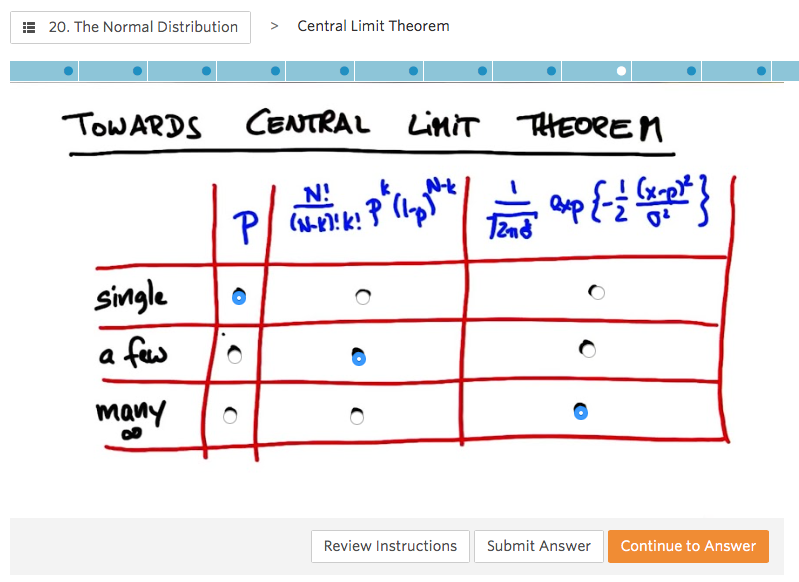 20. The Normal Distribution > Central Limit Theorem
TOWARDS CENTRAL LIMIT THEOREM
P N!/(N-k)!k! P^k (1-p)^N-k 1/√2πσ² exp{-1/2 (x-μ)²/σ²}
single
a few
many
∞
Review Instructions Submit Answer Continue to Answer